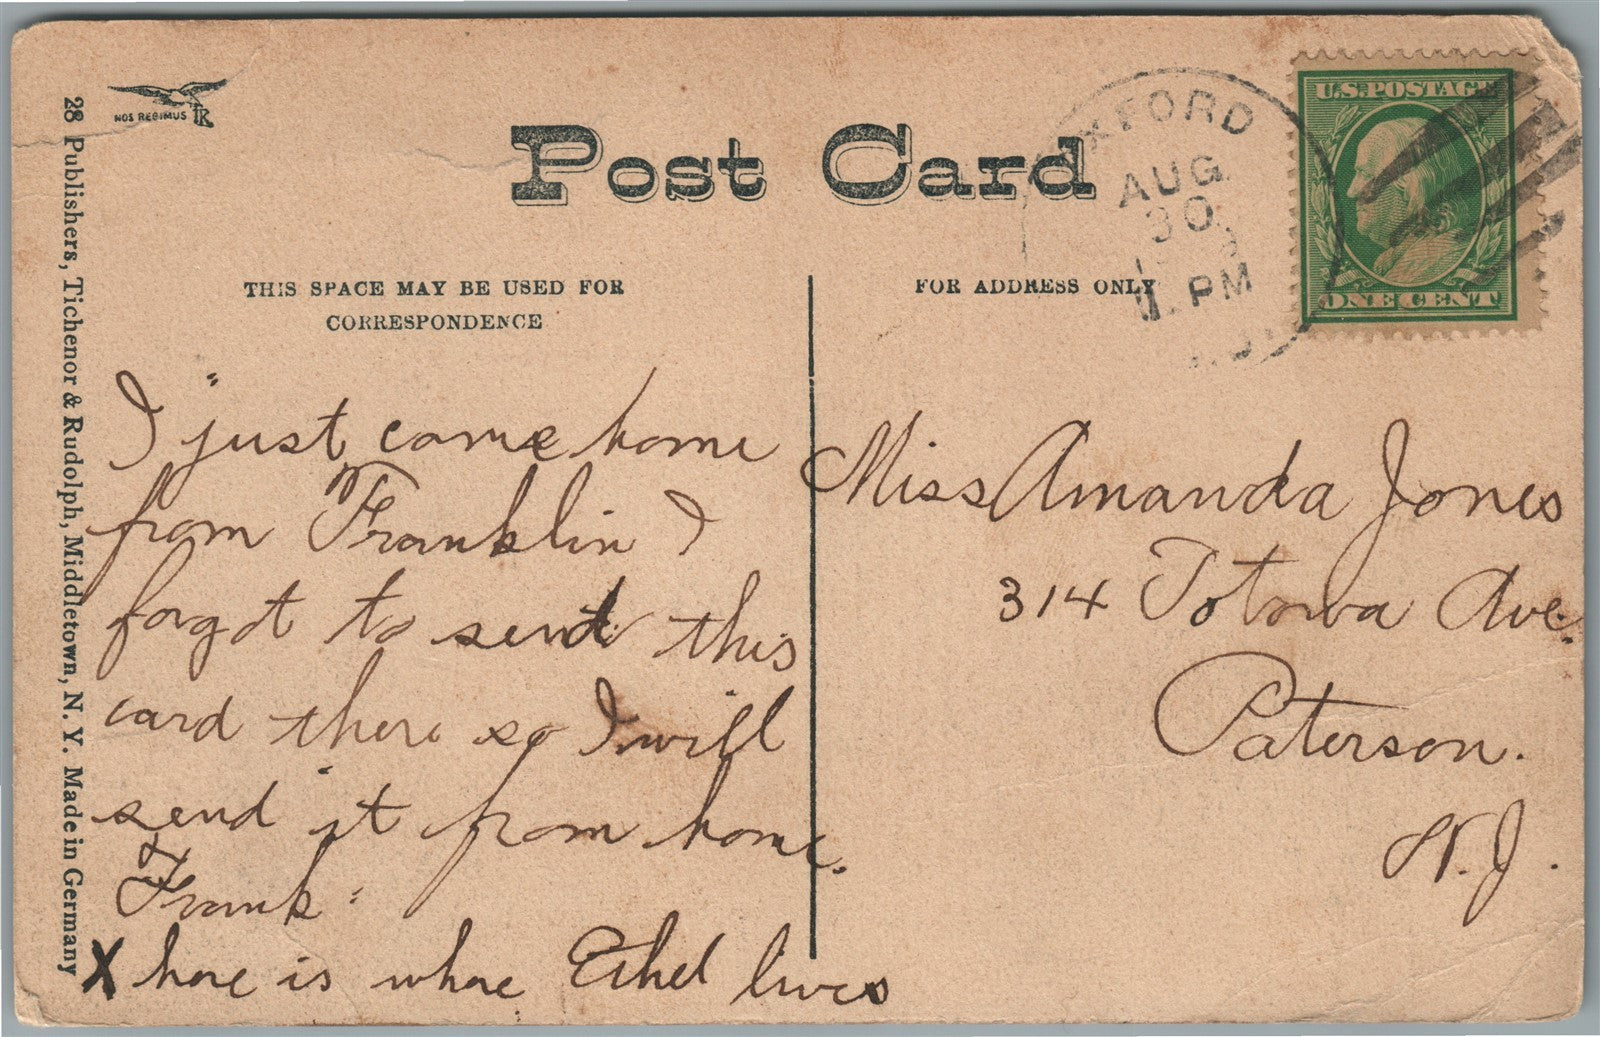 28 Publishers, Tichenor & Rudolph, Middletown, N. Y. Made in Germany
NOS REGIMUS TR
Post Card
OXFORD
AUG
30
1 PM
U.S. POSTAGE
ONE CENT
THIS SPACE MAY BE USED FOR
CORRESPONDENCE
FOR ADDRESS ONLY
I just came home
from Franklin I
forgot to send this
card there so I will
send it from home.
Frank
X here is where Ethel lives
Miss Amanda Jones
314 Totowa Ave.
Paterson.
N.J.